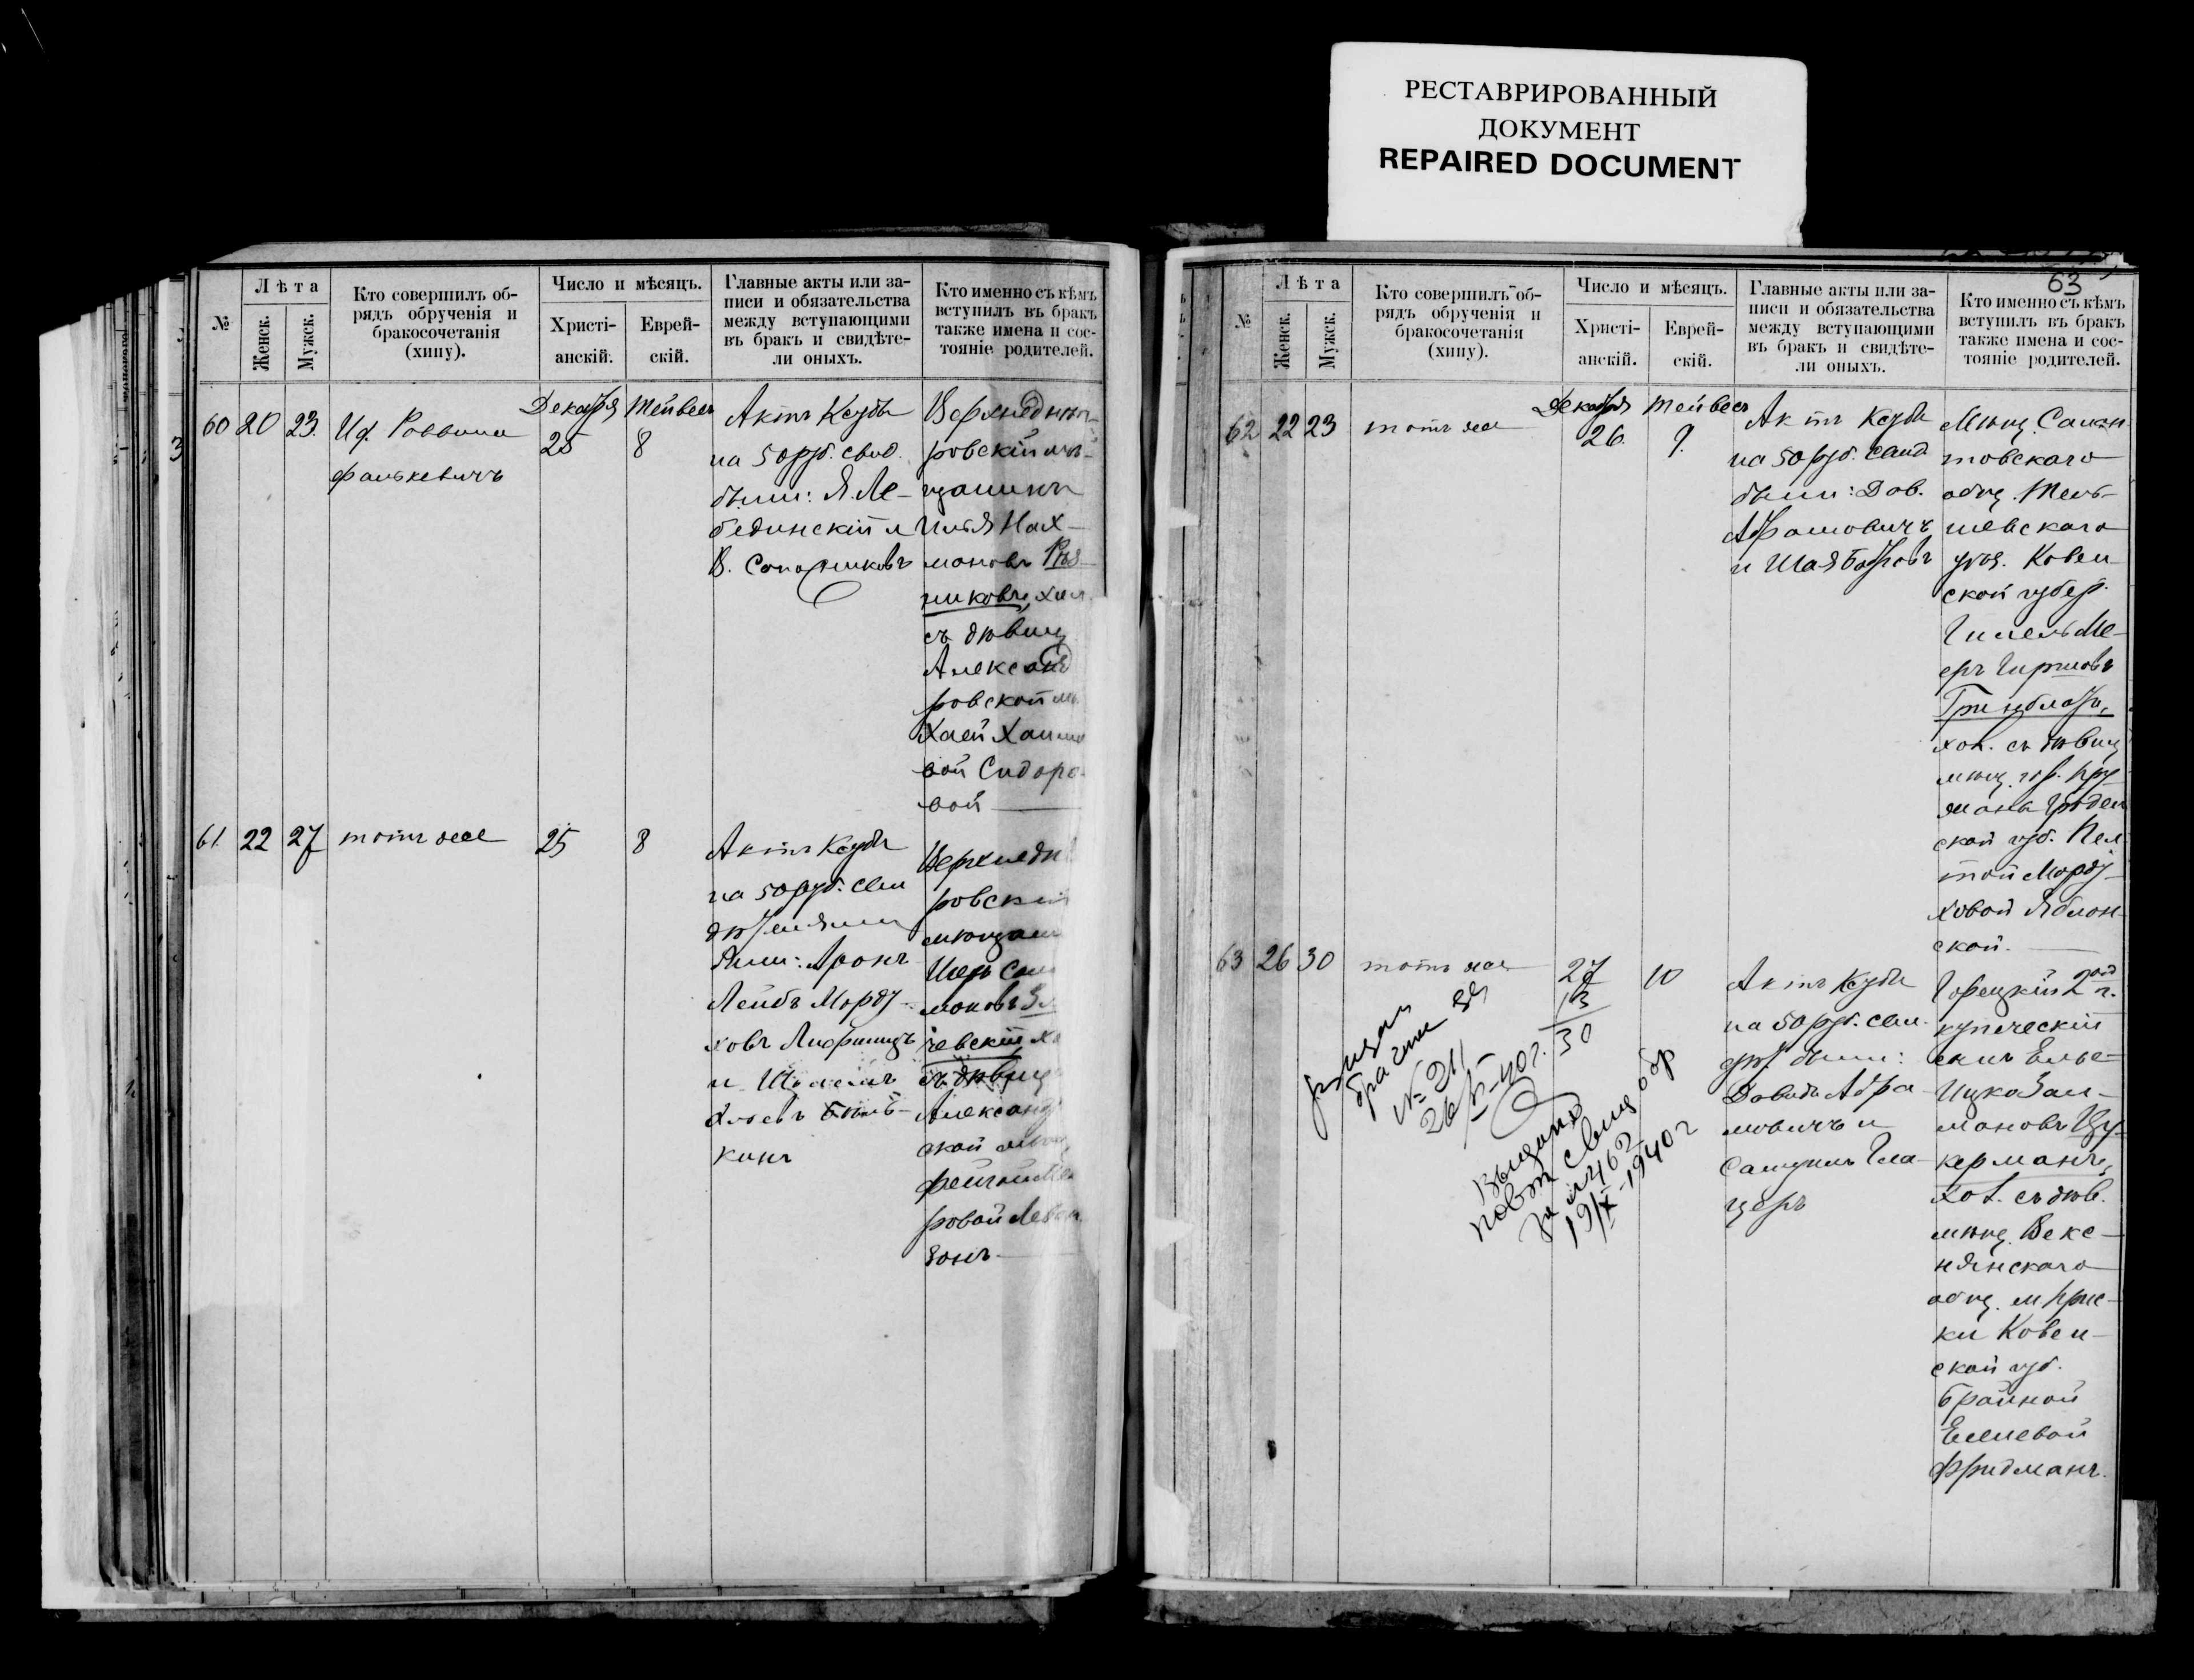 РЕСТАВРИРОВАННЫЙ
ДОКУМЕНТ
REPAIRED DOCUMENT
№
Лѣта
Женск.
Мужск.
Кто совершилъ об-
рядъ обрученія и
бракосочетанія
(хипу).
Число и мѣсяцъ.
Христі-
анскій.
Еврей-
скій.
Главные акты или за-
писи и обязательства
между вступающими
въ бракъ и свидѣте-
ли оныхъ.
Кто именно съ кѣмъ
вступилъ въ бракъ
также имена и сос-
тояніе родителей.
60 20 23.
Иф. Раввина
Фалькевичъ
Декабря
25
Тейвесъ
8
Актъ Ксубы
на 50 руб. свид.
были: Я. Ле-
бединскій и
В. Сапожниковъ
Верхнеднѣп-
ровскій мѣ-
щанинъ
Илья Нах-
мановъ Рѣз-
никовъ, хол.
съ дѣвиц
Александ
ровской мѣ
Хаей Хаимо
вой Сидоро-
вой
61 22 27
тотъ же
25
8
Актъ Ксубы
на 50 руб. сви
дѣтелями
были: Аронъ
Лейбъ Морду-
ховъ Лифшицъ
и
кинъ
Верхнедн
ровскій
мѣщан
мановъ
чевскій хо
съ дѣвиц
Александ
ской мѣщ
Фейгой Ме
ровой Левин
зонъ
63
№
Лѣта
Женск.
Мужск.
Кто совершилъ об-
рядъ обрученія и
бракосочетанія
(хипу).
Число и мѣсяцъ.
Христі-
анскій.
Еврей-
скій.
Главные акты или за-
писи и обязательства
между вступающими
въ бракъ и свидѣте-
ли оныхъ.
Кто именно съ кѣмъ
вступилъ въ бракъ
также имена и сос-
тояніе родителей.
62 22 23
тотъ же
Декабря
26.
Тейвесъ
9.
Актъ Ксубы
на 50 руб. свид
были: Дав.
Абрамовичъ
и Шая Бобровъ
Мѣщ. Салан-
товскаго
общ. Тель-
шевскаго
уѣз. Ковен
ской губер.
Гилель Ме-
еръ Гиршовъ
Гринблатъ,
хол. съ дѣвиц
мѣщ. гор. Пру-
жана Гроден
ской губ. Пел
той Морду-
ховой Яблон-
ской.
63 26 30
тотъ же
27
13
30
10
Актъ Ксубы
на 50 руб. сви-
дѣт. были:
Давидъ Абра-
мовичъ и
Самуилъ Гла-
церъ
Горецкій 2ой г.
купеческій
сынъ Елье-
Ицко Зал-
мановъ Цу-
керманъ,
хол. съ дѣв.
мѣщ. Векс-
нянскаго
общ.
ки Ковен-
ской губ.
Брайной
Еллевой
Фридманъ.
брачн
№ 211
26/V-40 г.
Выдано
повт свид обр
за № 462
19/X-1940 г